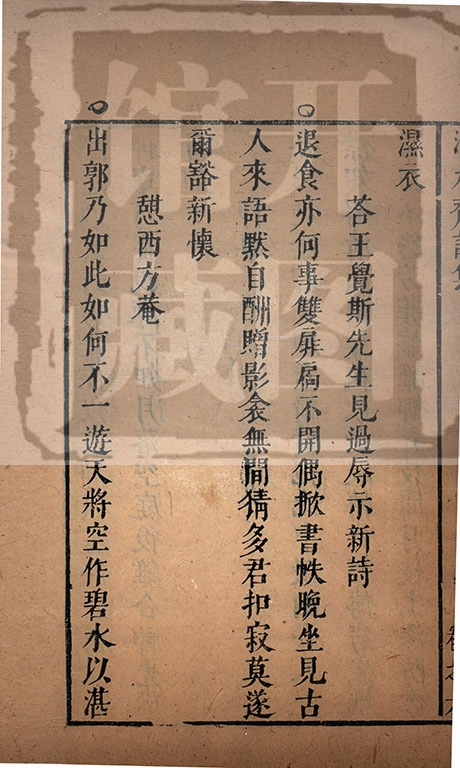 濕衣
荅王覺斯先生見過辱示新詩
退食亦何事雙扉扃不開偶掀書帙晚坐見古
人來語默自酬贈影衾無間猜多君扣寂莫遂
爾豁新懷
憇西方菴
出郭乃如此如何不一遊天將空作碧水以湛
开图馆藏